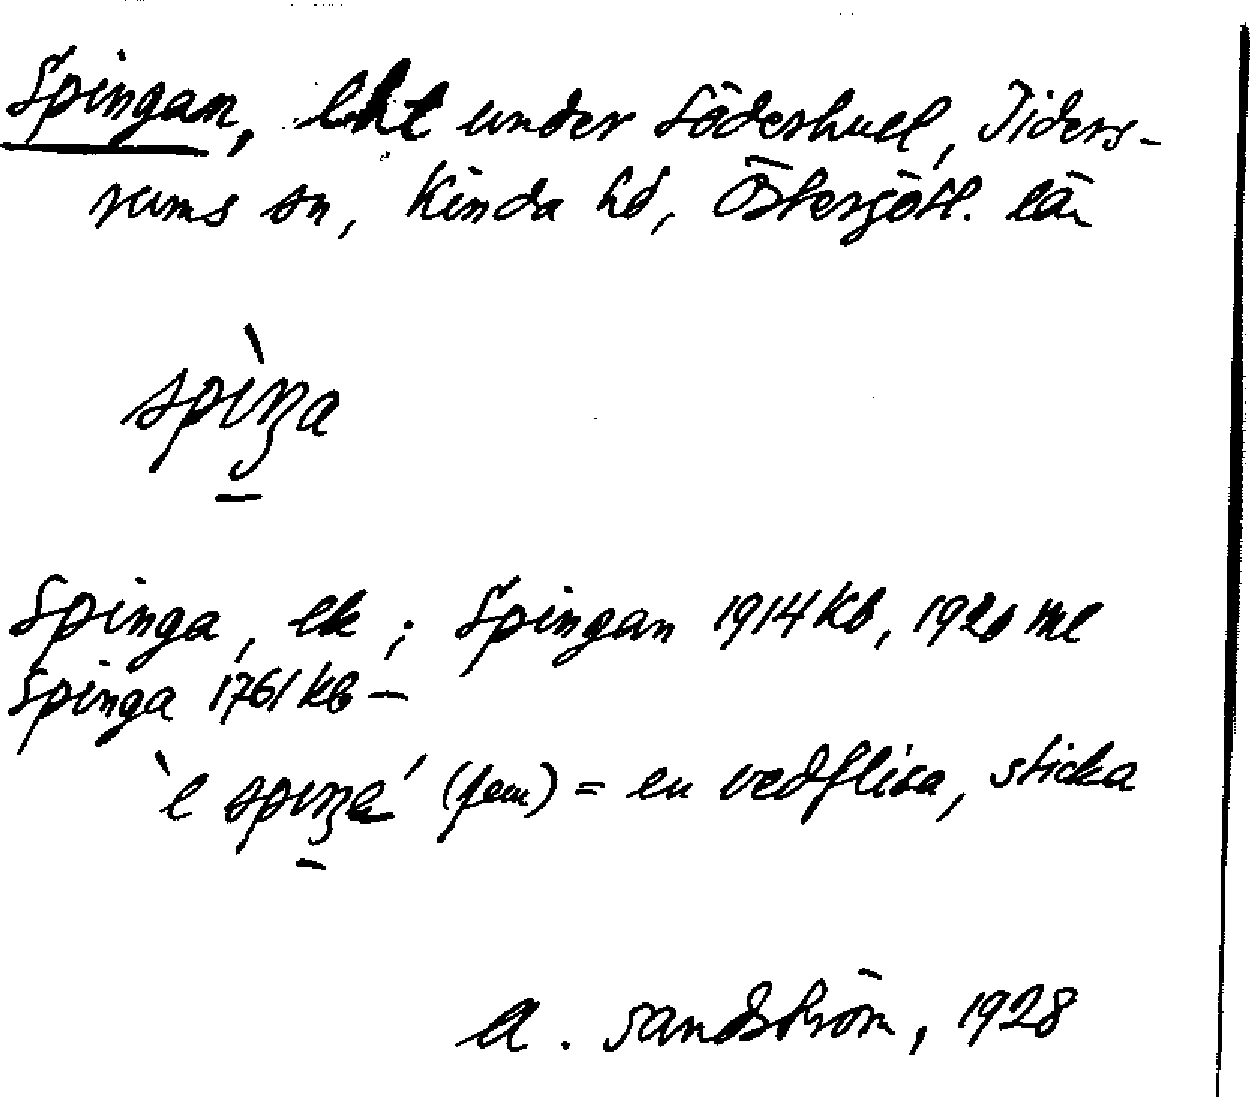 Spingan, lht under Söderhult, Tiders-
rums sn, Kinda hd, Östergötl. län
spiŋa
Spinga, ek; Spingan 1914 Kb, 1920 ml
Spinga 1761 Kb —
`e spiŋa´ (fem) = en vedflisa, sticka
A. Sandström, 1928